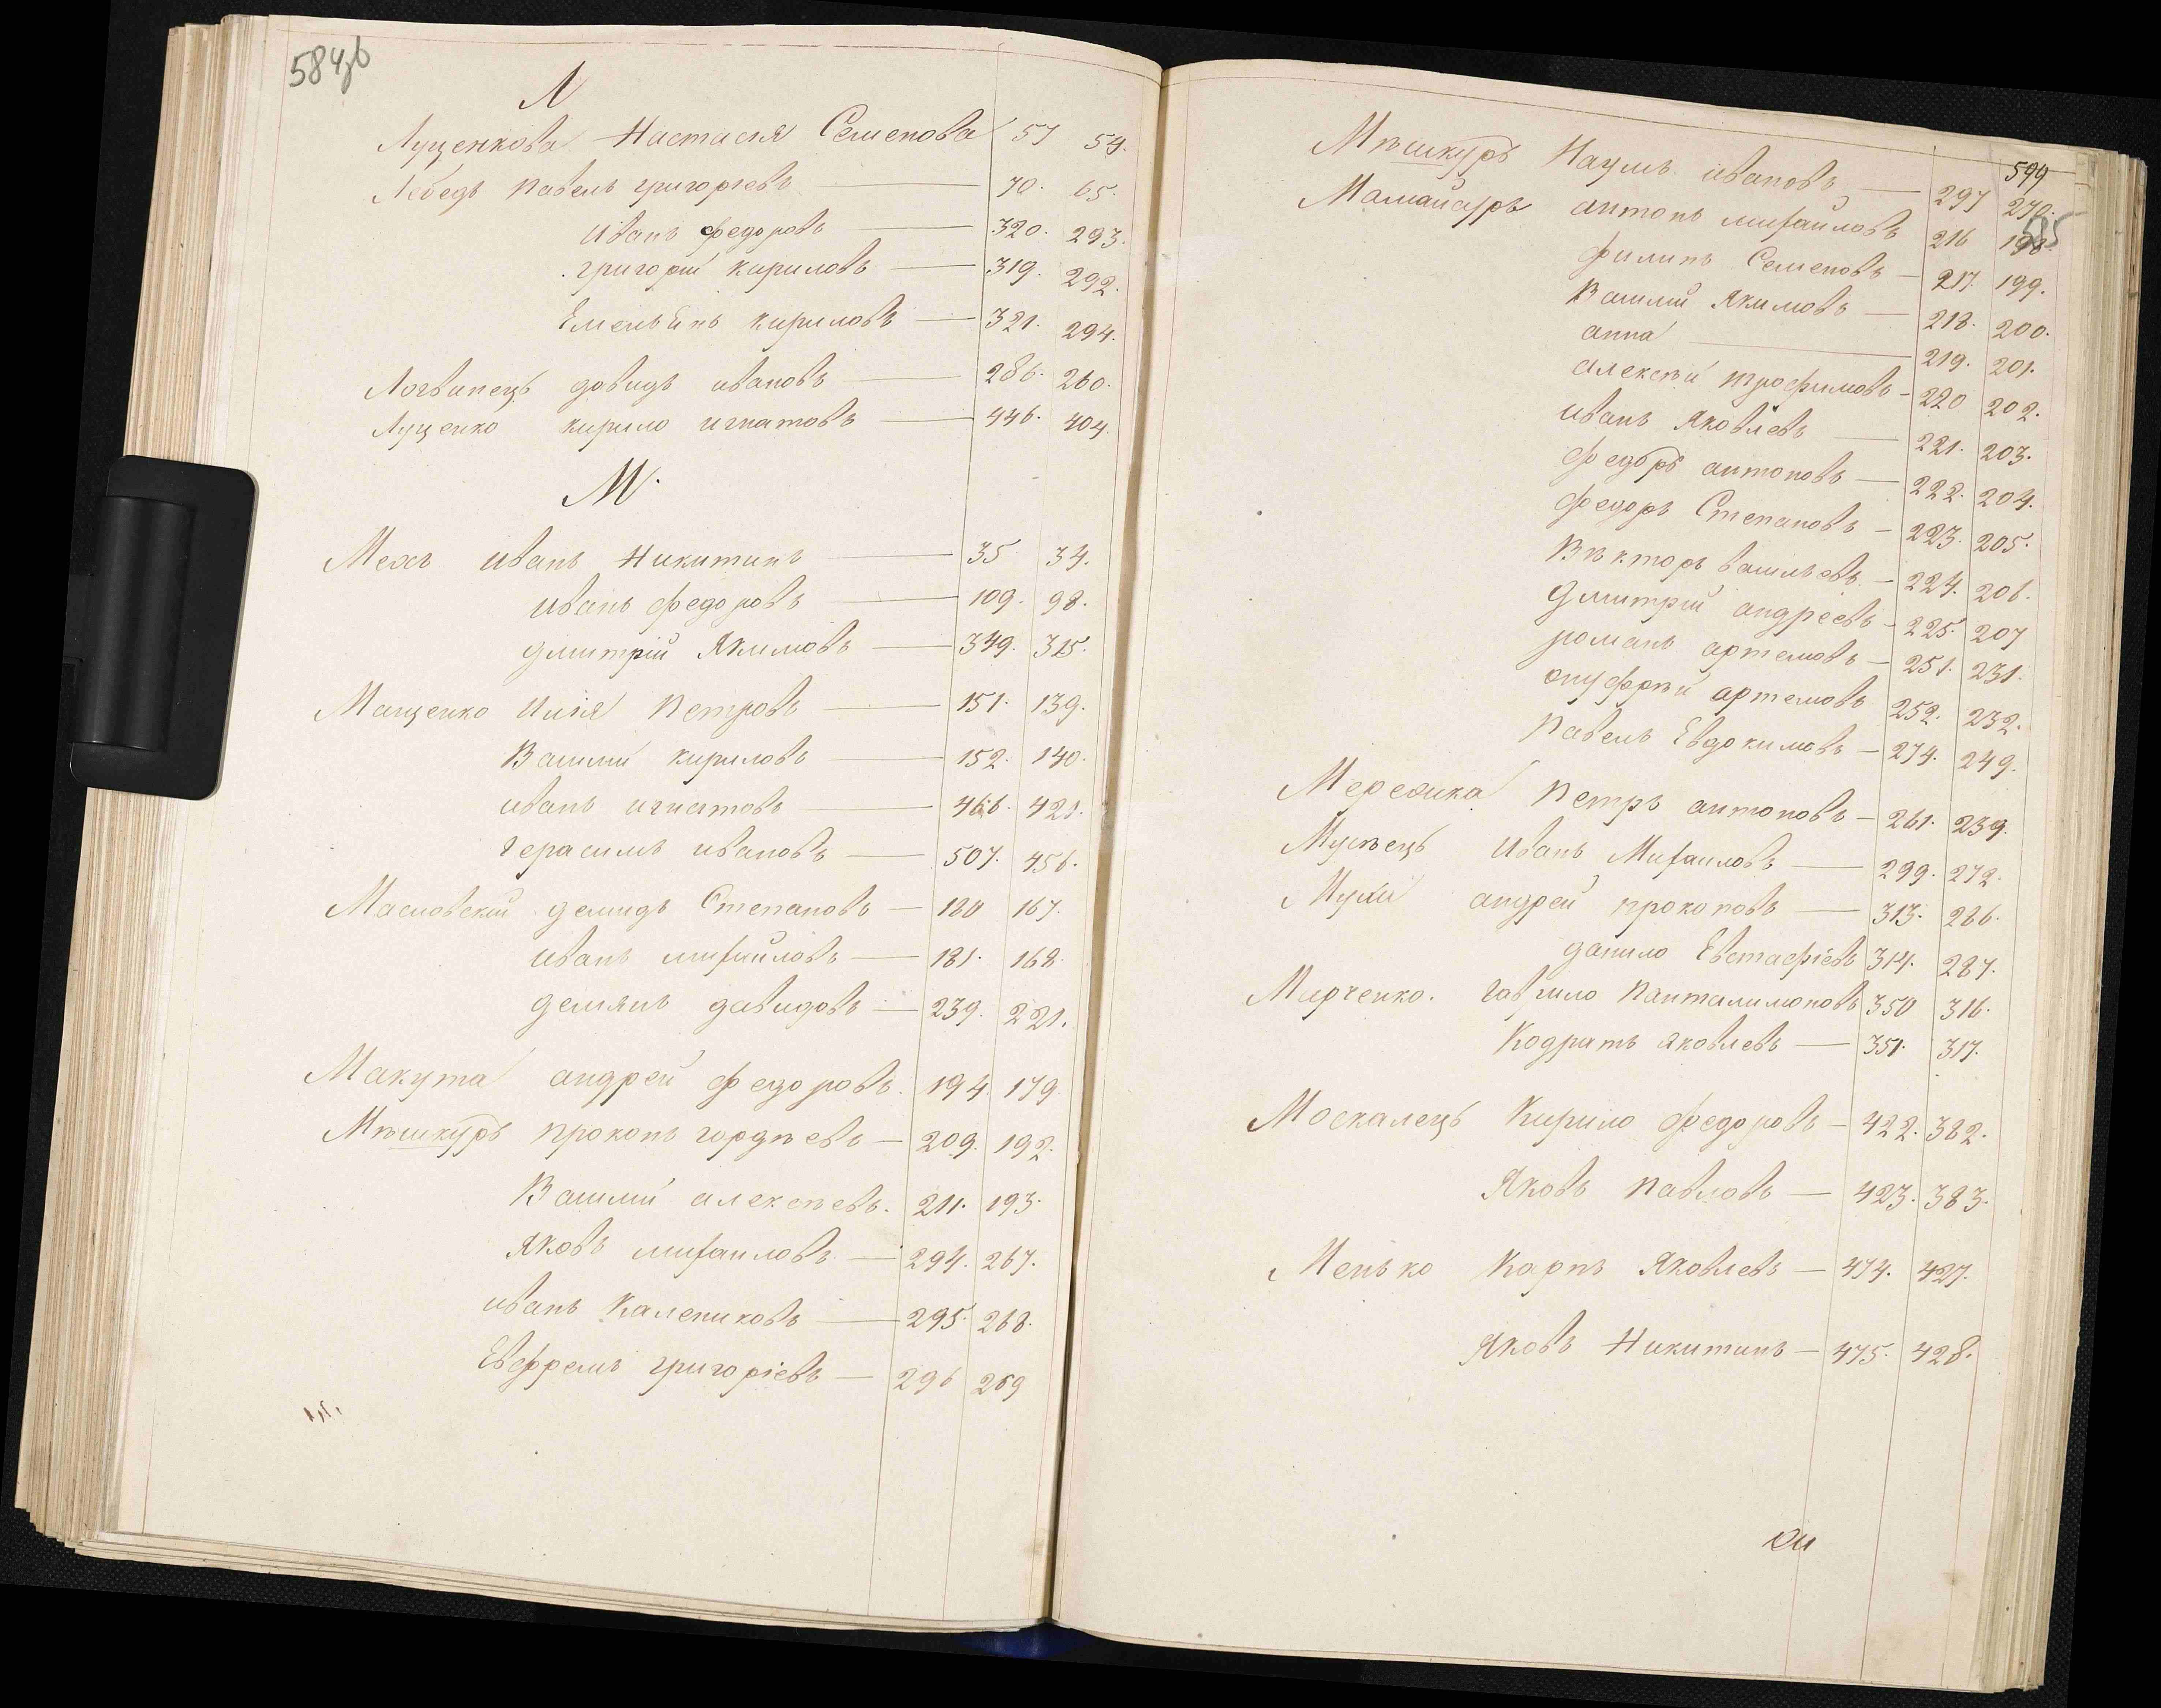 584зв
Л
Луценкова Настасія Семенова 57 54.
Лебедь павелъ григоріевъ 70. 65.
иванъ федоровъ 320. 293.
григорій кириловъ 319. 292.
Емельянъ кириловъ 321. 294.
Логвинецъ довидъ ивановъ 286. 260.
Луценко кирило игнатовъ 446. 404.
М.
Мехъ иванъ Никитинъ 35 34.
иванъ федоровъ 109. 98.
дмитрій Якимовъ 349. 315.
Маценко Илія петровъ 151. 139.
Василій кириловъ 152. 140.
иванъ игнатовъ 466. 421.
герасимъ ивановъ 507. 456.
Масловскій демидъ Степановъ 180 167.
иванъ михайловъ 181. 168.
демянъ давидовъ 239. 221.
Макута андрей федоровъ. 194. 179
Мѣшкуръ прокопъ гордѣевъ 209. 192.
Василій алексѣевъ. 211. 193.
Яковъ михаиловъ 294. 267.
иванъ Калениковъ 295. 268.
Евфремъ григоріевъ 296 269
599
585
Мѣшкуръ Наумъ ивановъ 297 270.
Мамайсуръ антонъ михайловъ 216 198.
филипъ Семеновъ 217. 199.
Василій Якимовъ 218. 200.
анна 219. 201.
алексѣй трофимовъ 220 202.
иванъ Яковлевъ 221. 203.
федоръ антоновъ 222. 204.
федоръ Степановъ 223. 205.
Вѣкторъ васильевъ. 224. 206.
Дмитрій андреевъ 225. 207
романъ артемовъ 251. 231.
онуфрѣй артемовъ 252. 232.
павелъ Евдокимовъ 274. 249.
Мережка Петръ антоновъ 261. 239.
Мусѣецъ Иванъ Михаиловъ 299. 272.
Муха андрей прокоповъ 313. 286.
данило Евстафіевъ 314. 287.
Марченко. гаврило Панталимоновъ 350 316.
Кодратъ яковлевъ 351. 317.
Москалецъ Кирило федоровъ 422. 382.
Яковъ павловъ 423. 383.
Менько Карпъ Яковлевъ 474. 427.
Яковъ Никитинъ 475. 428.